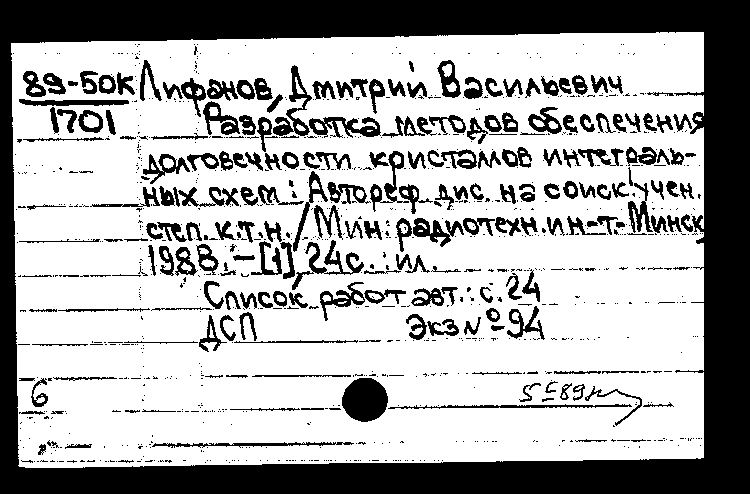 89-50К Лифанов, Дмитрий Васильевич
1701 Разработка методов обеспечения
долговечности кристаллов интеграль-
ных схем : Автореф. дис. на соиск. учен.
степ. к.т.н. / Мин. радиотехн. ин-т.- Минск,
1988. - [1], 24с. : ил.
Список работ авт.: с. 24
ДСП Экз № 94
6